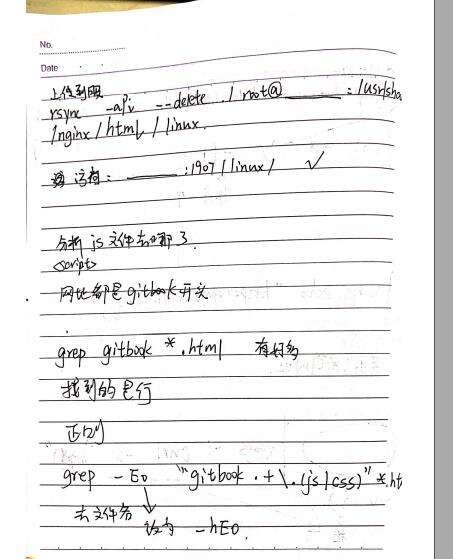 No.
Date
上传到服
rsync -apv --delete ./ root@______:/usr/sha
/nginx/html/linux
访问: ______:1907/linux/ ✓
分析 js 文件去哪了.
<script>
网址都是gitbook开头
grep gitbook *.html 有好多
找到的是行
正则
grep -Eo "gitbook.+\.(js|css)" *.ht
去文件名 改为 -hEo.